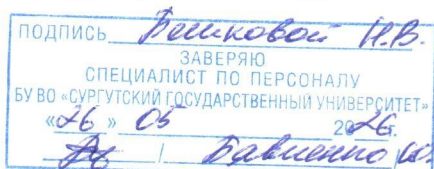 ПОДПИСЬ Бешковой Н.В.
ЗАВЕРЯЮ
СПЕЦИАЛИСТ ПО ПЕРСОНАЛУ
БУ ВО «СУРГУТСКИЙ ГОСУДАРСТВЕННЫЙ УНИВЕРСИТЕТ»
«26» 05 2026г.
/